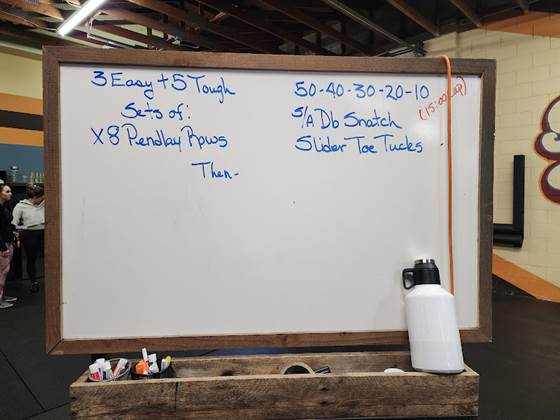 3 Easy + 5 Tough
Sets of:
X 8 Pendlay Rows
Then-
50-40-30-20-10
(15:00 cap)
S/A Db Snatch
Slider Toe Tucks